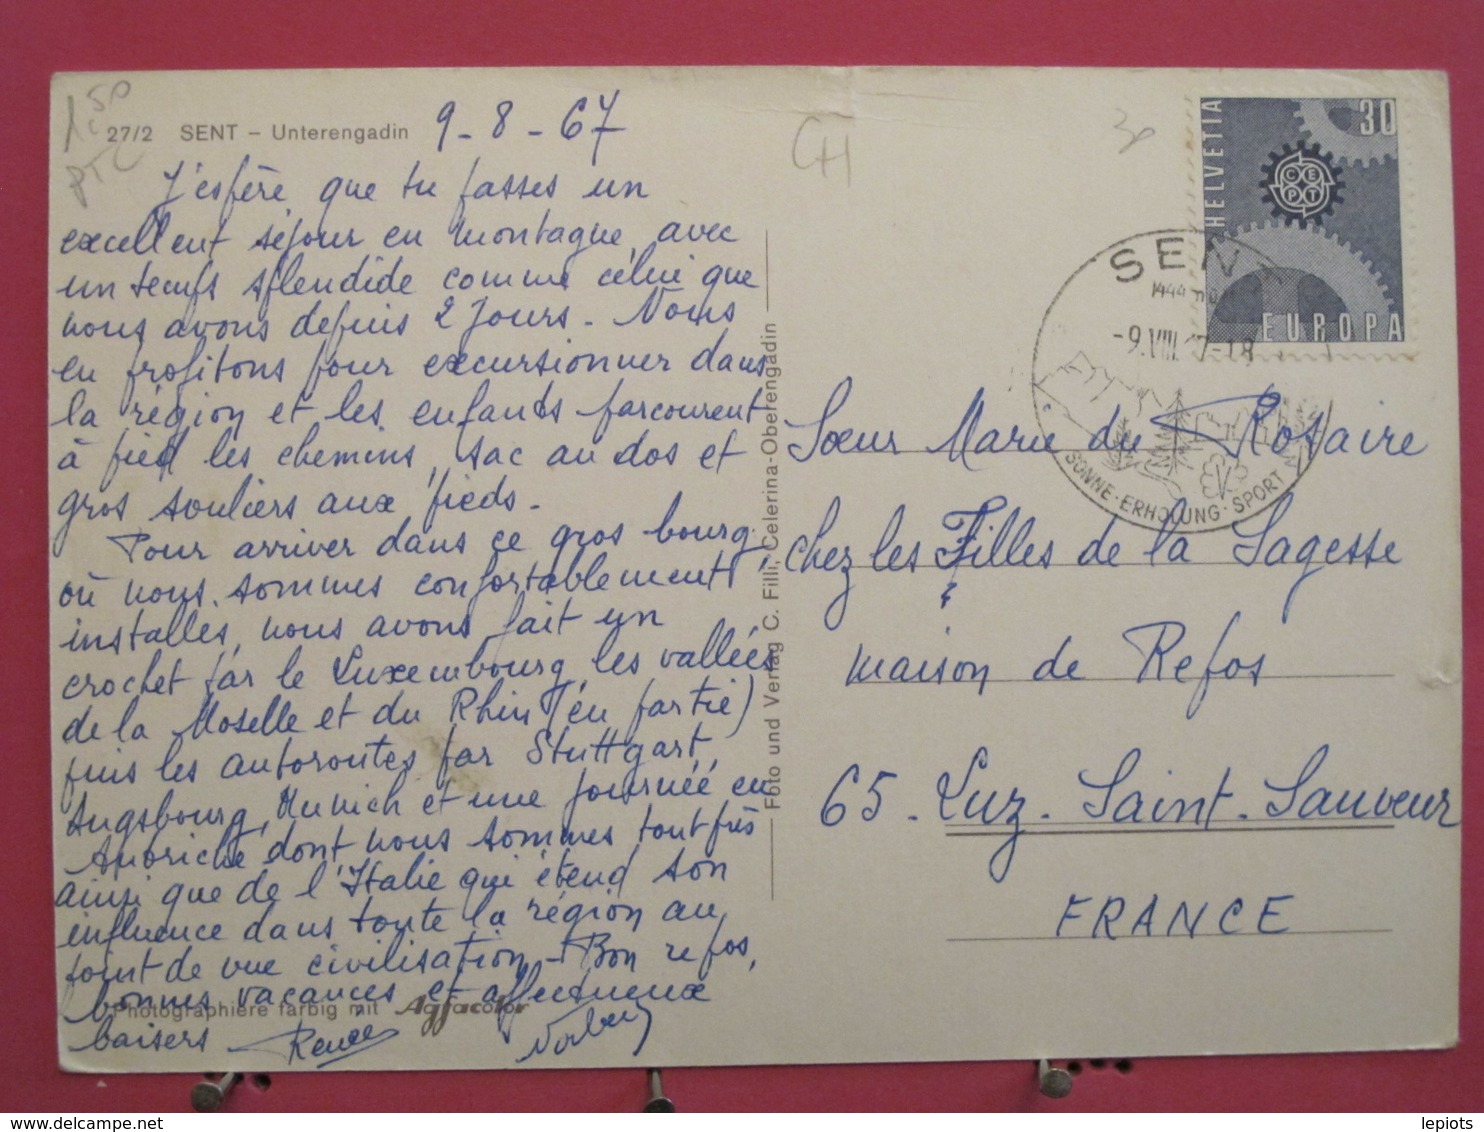 1,50
PTC
27/2 SENT – Unterengadin
9-8-67
J'espère que tu passes un
excellent séjour en montagne, avec
un temps splendide comme celui que
nous avons depuis 2 jours. Nous
en profitons pour excursionner dans
la région et les enfants parcourent
à pied les chemins, sac au dos et
gros souliers aux pieds.
Pour arriver dans ce gros bourg,
où nous sommes confortablement
installés, nous avons fait un
crochet par le Luxembourg, les vallées
de la Moselle et du Rhin (en partie)
puis les autoroutes par Stuttgart,
Augsbourg, Munich et une journée en
Autriche dont nous sommes tout près
ainsi que de l'Italie qui étend son
influence dans toute la région au
point de vue civilisation - Bon repos,
bonnes vacances et affectueux
baisers Renée Norbert
Photographiere farbig mit Agfacolor
Foto und Verlag C. Filli, Celerina-Oberengadin
CH
30
HELVETIA
30
CEPT
EUROPA
SENT
-9.VIII.67-18
SONNE · ERHOLUNG · SPORT
Sœur Marie du Rosaire
chez les Filles de la Sagesse
maison de Repos
65 - Luz - Saint - Sauveur
FRANCE
lepiots